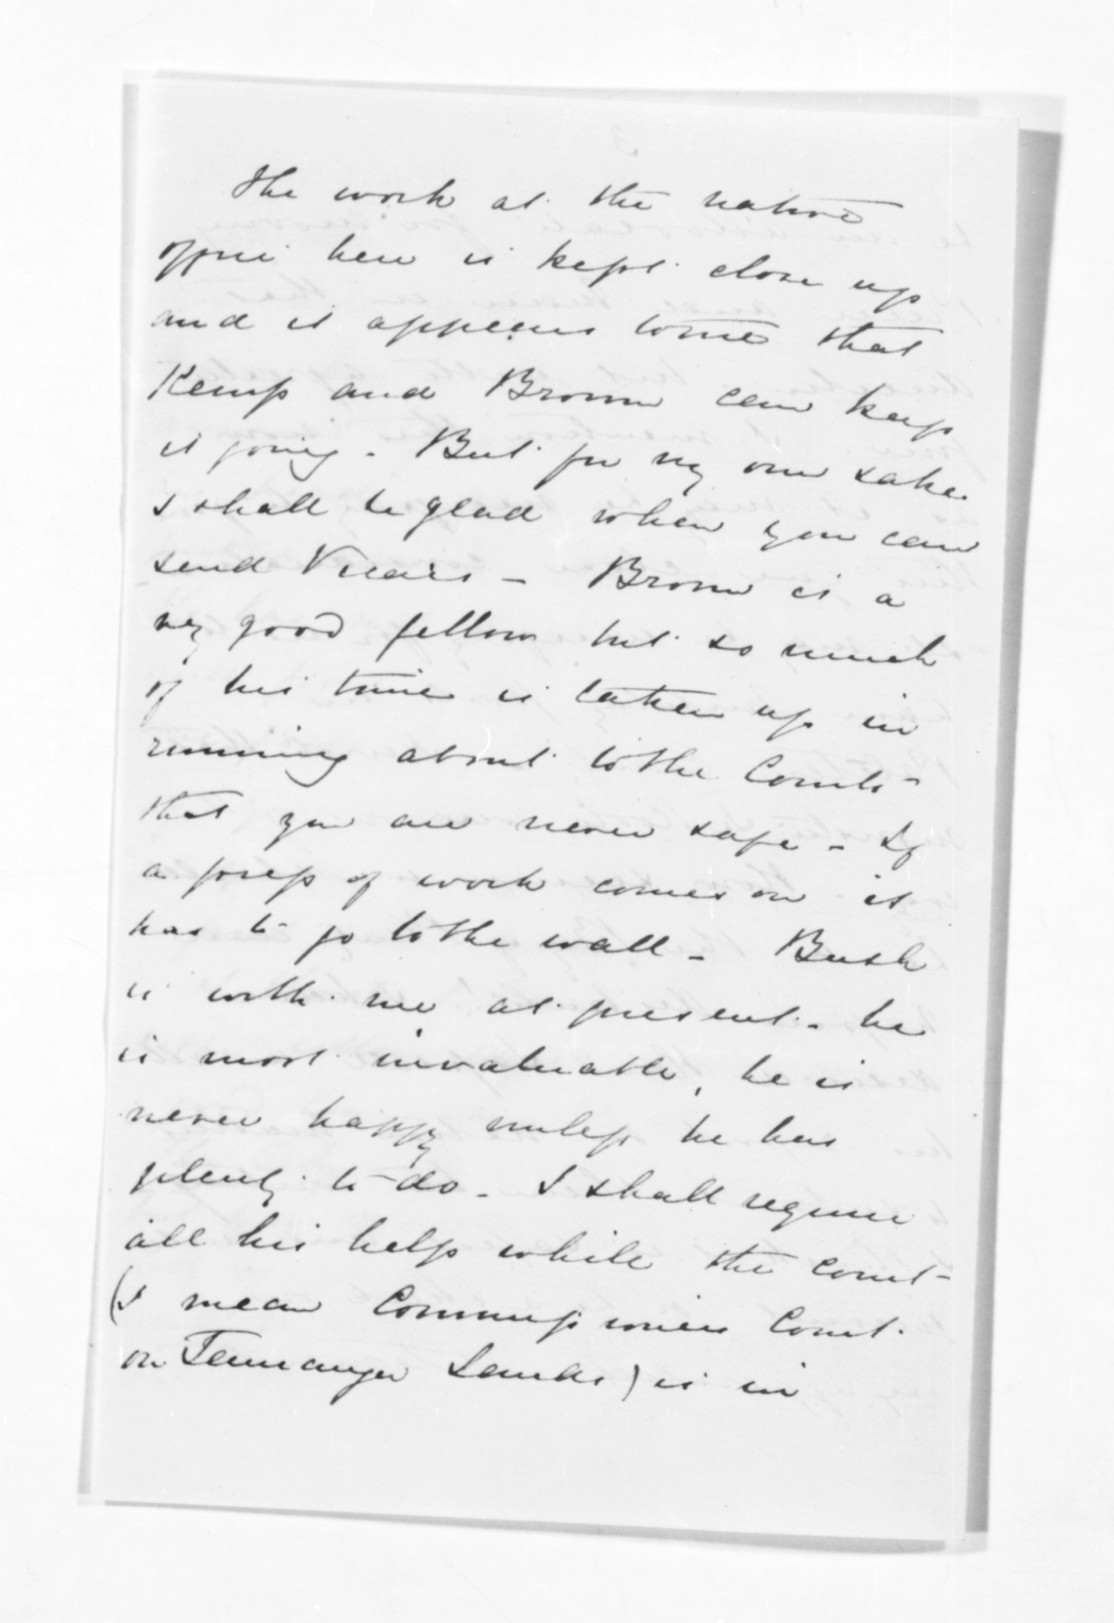 3
The work at the native
office here is kept close up
and it appears to me that
Kemp and Brown can keep
it going. But for my own sake
I shall be glad when you can
send Vicars - Brown is a
very good fellow but so much
of his time is taken up in
running about to the Courts -
that you are never safe - If
a press of work comes on it
has to go to the wall - Bush
is with me at present. he
is most invaluable, he is
never happy unless he has
plenty to do - I shall require
all his help while the court -
(I mean Commissioners Court
on Tauranga Lands) is in